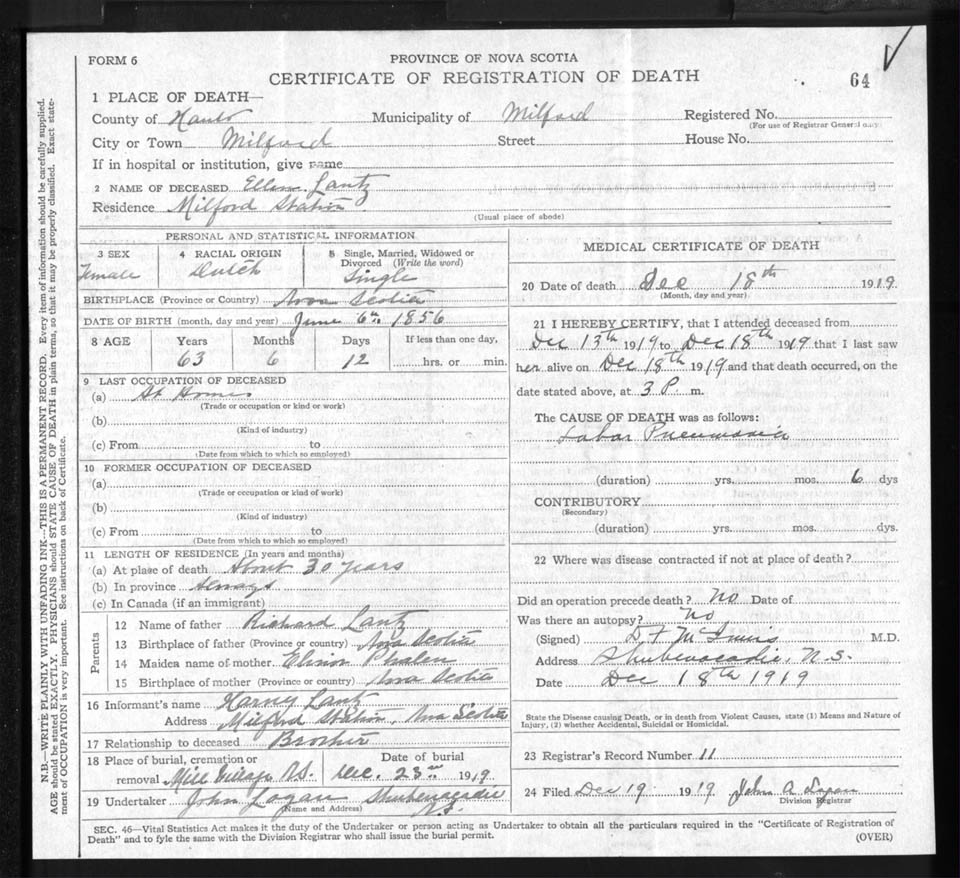 FORM 6
PROVINCE OF NOVA SCOTIA
CERTIFICATE OF REGISTRATION OF DEATH
64
1 PLACE OF DEATH—
County of Hants Municipality of Milford Registered No.
(For use of Registrar General only)
City or Town Milford Street House No.
If in hospital or institution, give name
2 NAME OF DECEASED Ellen Lantz
Residence Milford Station
(Usual place of abode)
PERSONAL AND STATISTICAL INFORMATION
3 SEX 4 RACIAL ORIGIN 5 Single, Married, Widowed or
Divorced (Write the word)
Female Dutch Single
BIRTHPLACE (Province or Country) Nova Scotia
DATE OF BIRTH (month, day and year) June 6th 1856
8 AGE Years Months Days If less than one day,
63 6 12 hrs. or min.
9 LAST OCCUPATION OF DECEASED
(a) At Home
(Trade or occupation or kind or work)
(b)
(Kind of industry)
(c) From to
(Date from which to which so employed)
10 FORMER OCCUPATION OF DECEASED
(a)
(Trade or occupation or kind of work)
(b)
(Kind of industry)
(c) From to
(Date from which to which so employed)
11 LENGTH OF RESIDENCE (In years and months)
(a) At place of death About 30 years
(b) In province Always
(c) In Canada (if an immigrant)
Parents
12 Name of father Richard Lantz
13 Birthplace of father (Province or country) Nova Scotia
14 Maiden name of mother Elinor Phalen
15 Birthplace of mother (Province or country) Nova Scotia
16 Informant's name Harvey Lantz
Address Milford Station, Nova Scotia
17 Relationship to deceased Brother
18 Place of burial, cremation or Date of burial
removal Mill Village N.S. Dec. 23rd 1919
19 Undertaker John Logan Shubenacadie
(Name and Address) N.S.
MEDICAL CERTIFICATE OF DEATH
20 Date of death Dec 18th 1919.
(Month, day and year)
21 I HEREBY CERTIFY, that I attended deceased from
Dec 13th 1919 to Dec 18th 1919 that I last saw
her alive on Dec 18th 1919 and that death occurred, on the
date stated above, at 3 P. m.
The CAUSE OF DEATH was as follows:
Lobar Pneumonia
(duration) yrs. mos. 6 dys
CONTRIBUTORY
(Secondary)
(duration) yrs. mos. dys.
22 Where was disease contracted if not at place of death?
Did an operation precede death? no Date of
Was there an autopsy? no
(Signed) D F McInnis M.D.
Address Shubenacadie, N.S.
Date Dec 18th 1919
State the Disease causing Death, or in death from Violent Causes, state (1) Means and Nature of
Injury, (2) whether Accidental, Suicidal or Homicidal.
23 Registrar's Record Number 11
24 Filed Dec 19 1919 John A
Division Registrar
SEC. 46—Vital Statistics Act makes it the duty of the Undertaker or person acting as Undertaker to obtain all the particulars required in the "Certificate of Registration of
Death" and to fyle the same with the Division Registrar who shall issue the burial permit. (OVER)
N.B.—WRITE PLAINLY WITH UNFADING INK—THIS IS A PERMANENT RECORD. Every item of information should be carefully supplied.
AGE should be stated EXACTLY. PHYSICIANS should STATE CAUSE OF DEATH in plain terms, so that it may be properly classified. Exact state-
ment of OCCUPATION is very important. See instructions on back of Certificate.